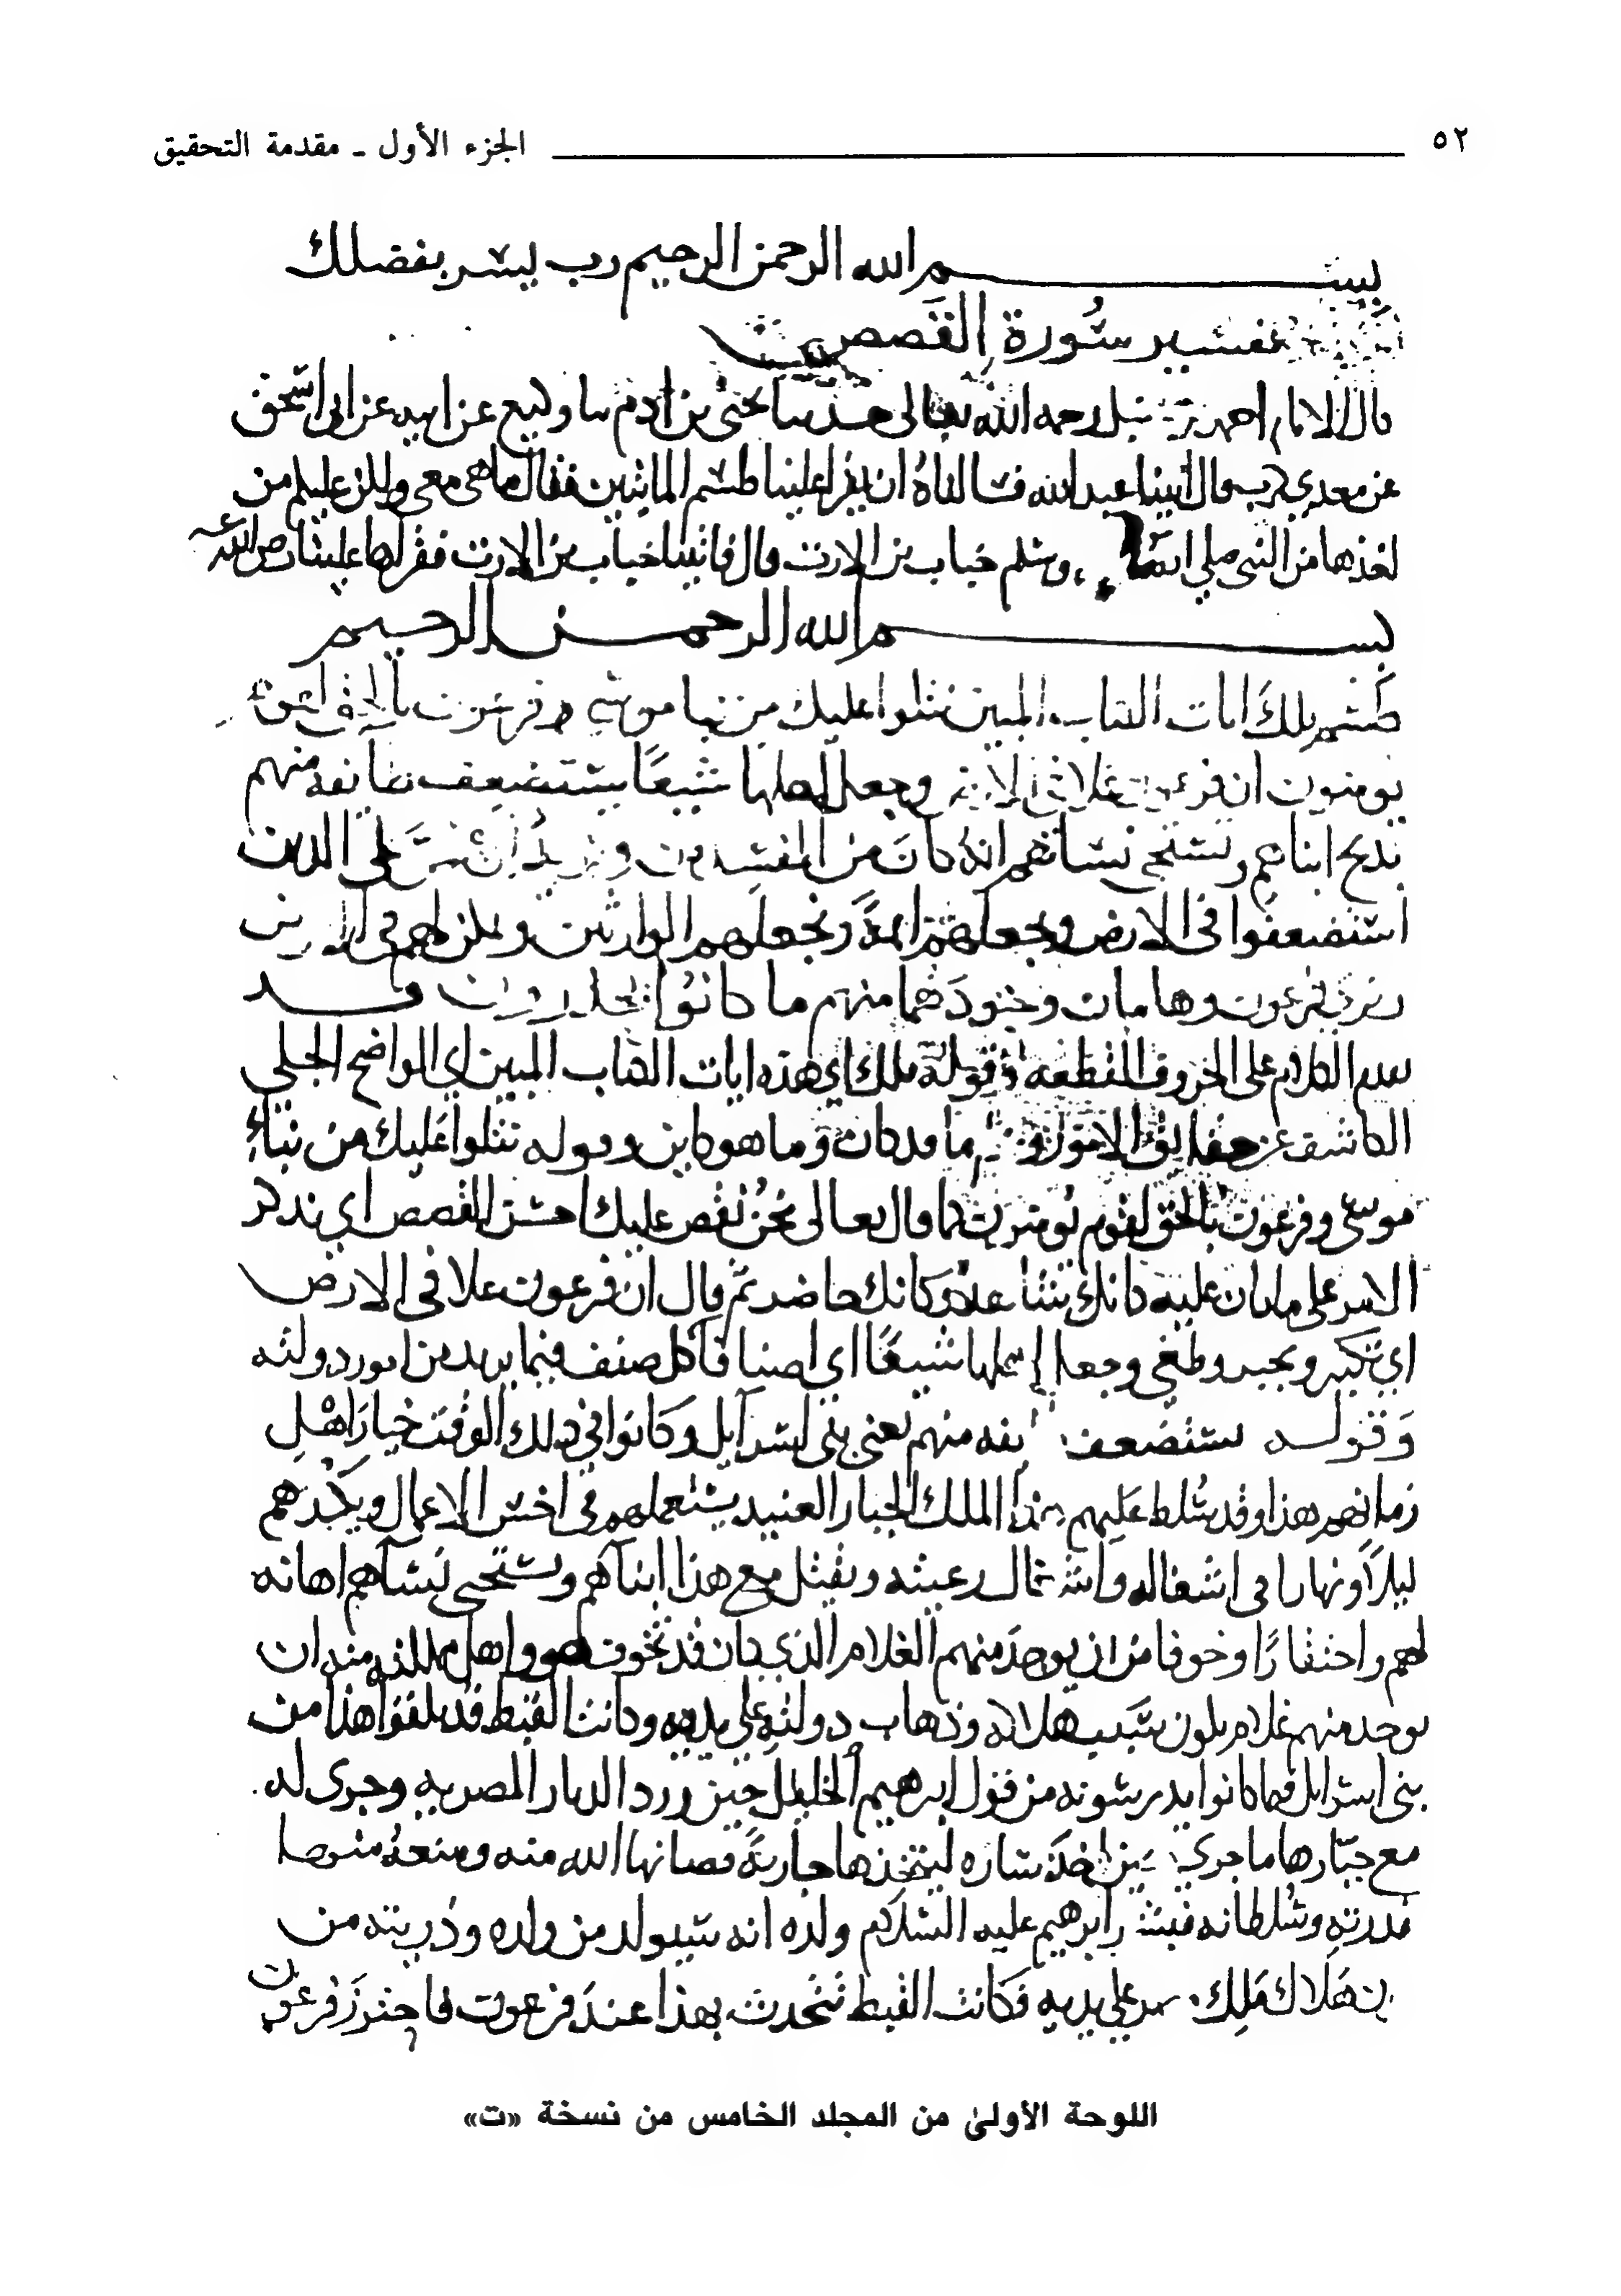 ٥٢ الجزء الأول ـ مقدمة التحقيق
بسم الله الرحمن الرحيم رب يسر بفضلك
تفسير سورة القصص
قال الامام احمد بن حنبل رحمه الله تعالى حدثنا يحيى بن ادم ثنا وكيع عن ابيه عن ابي اسحق
عن معدي كرب قال اتينا عبد الله فسالناه ان يقرا علينا طسم المائتين فقال ما هي معي ولكن عليكم من
اخذها من النبي صلى الله وسلم خباب بن الارت قال فاتينا خباب بن الارت فقراها علينا رضي الله عنه
بسم الله الرحمن الرحيم
طسم تلك ايات الكتاب المبين نتلوا عليك من نبا موسى وفرعون بالحق لقوم
يومنون ان فرعون علا في الارض وجعل اهلها شيعًا يستضعف طائفه منهم
يذبح ابناهم ويستحي نسائهم انه كان من المفسدين ونريد ان نمن على الذين
استضعفوا في الارض ونجعلهم ائمة ونجعلهم الوارثين ونمكن لهم في الارض
ونري فرعون وهامان وجنودهما منهم ما كانوا يحذرون قد
تقدم الكلام على الحروف المقطعه وقوله تلك اي هذه ايات الكتاب المبين اي الواضح الجلي
الكاشف عن حقايق الامور وعلم ما قد كان وما هو كاين وقوله نتلوا عليك من نباء
موسى وفرعون بالحق لقوم يومنون كما قال تعالى نحن نقص عليك احسن القصص اي نذكر لك
الامر على ما كان عليه كانك تشاهد وكانك حاضر ثم قال ان فرعون علا في الارض
اي تكبر وتجبر وطغى وجعل اهلها شيعًا اي اصنافا كل صنف فيما يريد من امور دولته
وقوله يستضعف طايفه منهم يعني بني اسرآيل وكانوا في ذلك الوقت خيار اهل
زمانهم هذا وقد سُلط عليهم هذا الملك الجبار العنيد يستعملهم في اخس الاعمال ويكدهم
ليلاً ونهارا في اشغاله واشغال رعيته ويقتل مع هذا ابناهم ويستحيي نسآهم اهانه
لهم واحتقارًا وخوفا من ان يوجد منهم الغلام الذي كان قد تخوف هو واهل مملكته منه ان
يوجد منهم غلام يكون سبب هلاكه وذهاب دولته على يديه وكانت القبط قد تلقوا هذا من
بني اسرايل فيما كانوا يدرسونه من قول ابرهيم الخليل حين ورد الديار المصريه وجرى له
مع جبارها ما جرى حين اخذ ساره ليتخذها جارية فصانها الله منه ومنعه منها
قدرته وسلطانه فبشر ابرهيم عليه السلام ولده انه سيولد من ولده وذريته من
يكون هلاك ملك مصر على يديه فكانت القبط تتحدث بهذا عند فرعون فاحترز فرعون
اللوحة الأولى من المجلد الخامس من نسخة «ت»